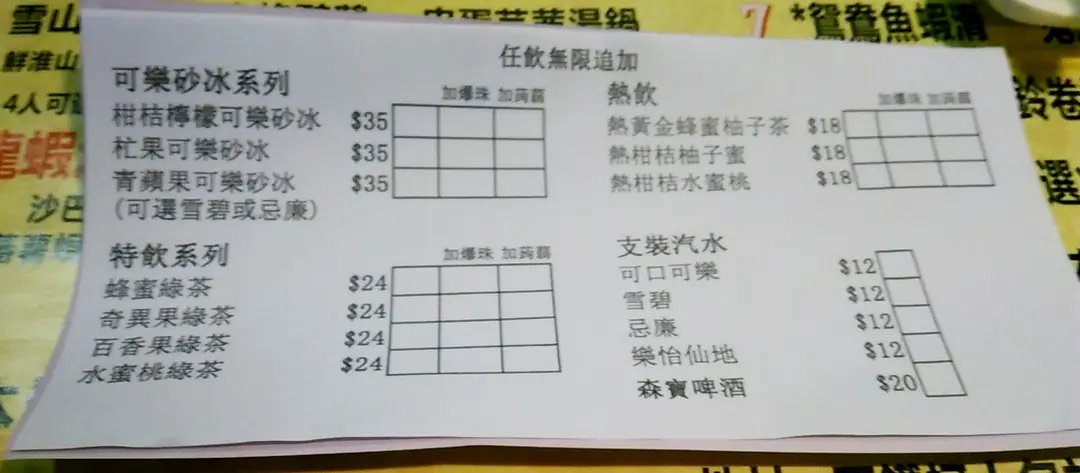 任飲無限追加
可樂砂冰系列
加爆珠 加蒟蒻
柑桔檸檬可樂砂冰 $35
杧果可樂砂冰 $35
青蘋果可樂砂冰 $35
(可選雪碧或忌廉)
特飲系列
加爆珠 加蒟蒻
蜂蜜綠茶 $24
奇異果綠茶 $24
百香果綠茶 $24
水蜜桃綠茶 $24
熱飲
加爆珠 加蒟蒻
熱黃金蜂蜜柚子茶 $18
熱柑桔柚子蜜 $18
熱柑桔水蜜桃 $18
支裝汽水
可口可樂 $12
雪碧 $12
忌廉 $12
樂怡仙地 $12
森寶啤酒 $20
雪山
鮮淮山
4人可
龍蝦
沙巴
皮蛋芫茜湯鍋
7 *鴛鴦魚蝦滑
鈴卷
選